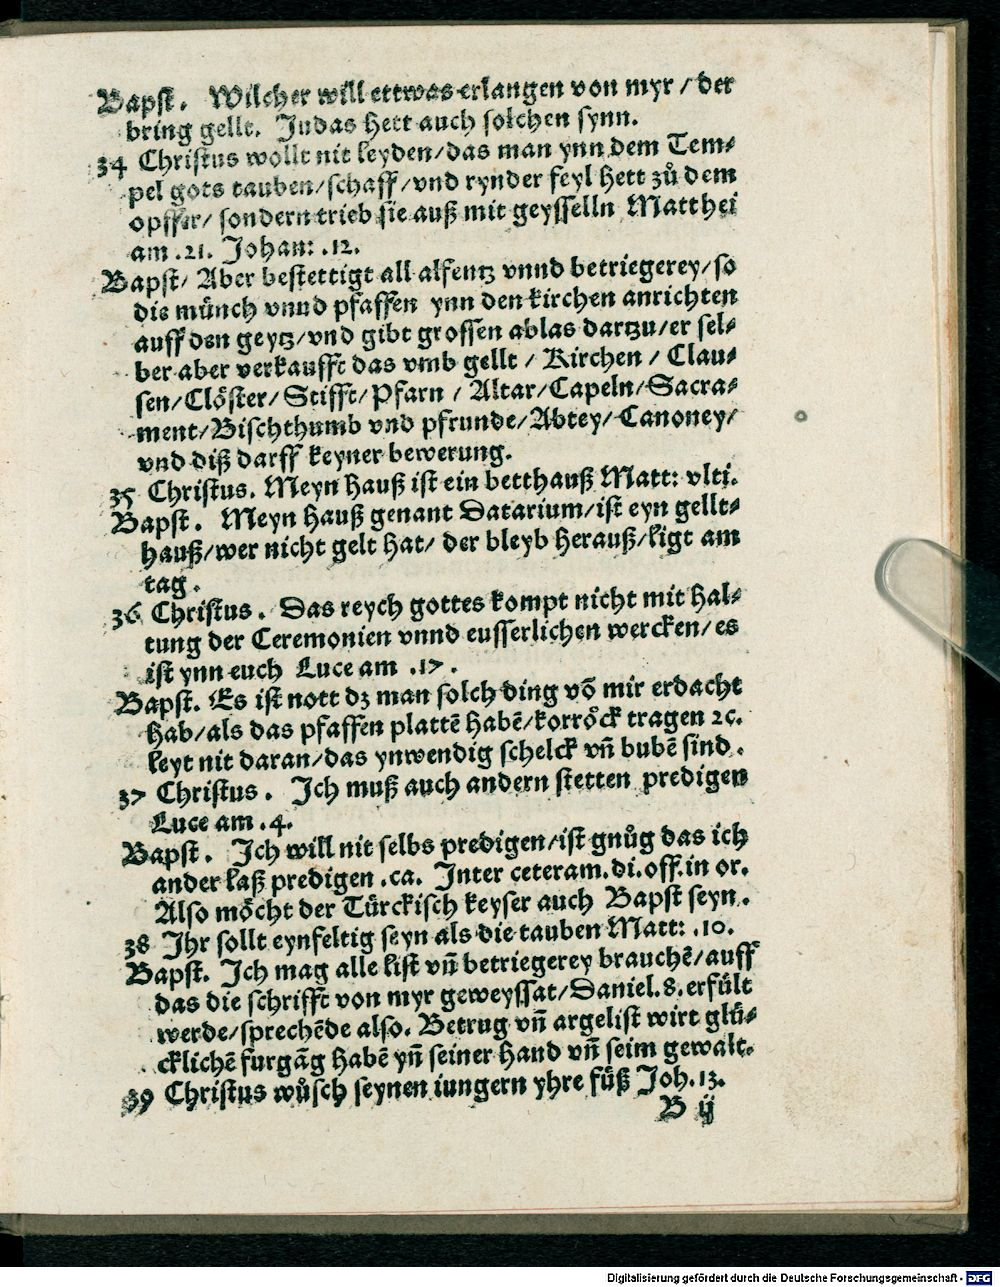 Bapst. Wilcher will ettwas erlangen von myr / der
bring gellt. Judas hett auch solchen synn.
34 Christus wollt nit leyden/das man ynn dem Tem⸗
pel gots tauben/schaff/vnd rynder feyl hett zů dem
opffer/ sondern trieb sie auß mit geysselln Matthei
am .21. Johan: .12.
Bapst/ Aber bestettigt all alfentz vnnd betriegerey/so
die münch vnnd pfaffen ynn den kirchen anrichten
auff den geytz/vnd gibt grossen ablas dartzu/er sel⸗
ber aber verkaufft das vmb gellt / Kirchen / Clau⸗
sen/Clöster/Stifft/Pfarn / Altar/Capeln/Sacra⸗
ment/Bischthumb vnd pfrunde/Abtey/Canoney/
vnd diß darff keyner bewerung.
35 Christus. Meyn hauß ist ein betthauß Matt: vlti.
Bapst. Meyn hauß genant Datarium/ist eyn gellt⸗
hauß/wer nicht gelt hat/ der bleyb herauß/ligt am
tag.
36 Christus. Das reych gottes kompt nicht mit hal⸗
tung der Ceremonien vnnd eusserlichen wercken/es
ist ynn euch Luce am .17.
Bapst. Es ist nott dz man solch ding võ mir erdacht
hab/als das pfaffen plattē habē/korröck tragen ꝛc.
leyt nit daran/das ynwendig schelck vñ bubē sind.
37 Christus. Ich muß auch andern stetten predigen
Luce am .4.
Bapst. Ich will nit selbs predigen/ist gnůg das ich
ander laß predigen .ca. Inter ceteram.di.off.in or.
Also möcht der Türckisch keyser auch Bapst seyn.
38 Jhr sollt eynfeltig seyn als die tauben Matt: .10.
Bapst. Ich mag alle list vñ betriegerey brauchē/auff
das die schrifft von myr geweyssat/Daniel.8.erfült
werde/sprechēde also. Betrug vñ argelist wirt glü⸗
cklichē furgãg habē yñ seiner hand vñ seim gewalt.
39 Christus wůsch seynen iungern yhre füß Joh.13.
B ij
Digitalisierung gefördert durch die Deutsche Forschungsgemeinschaft - DFG